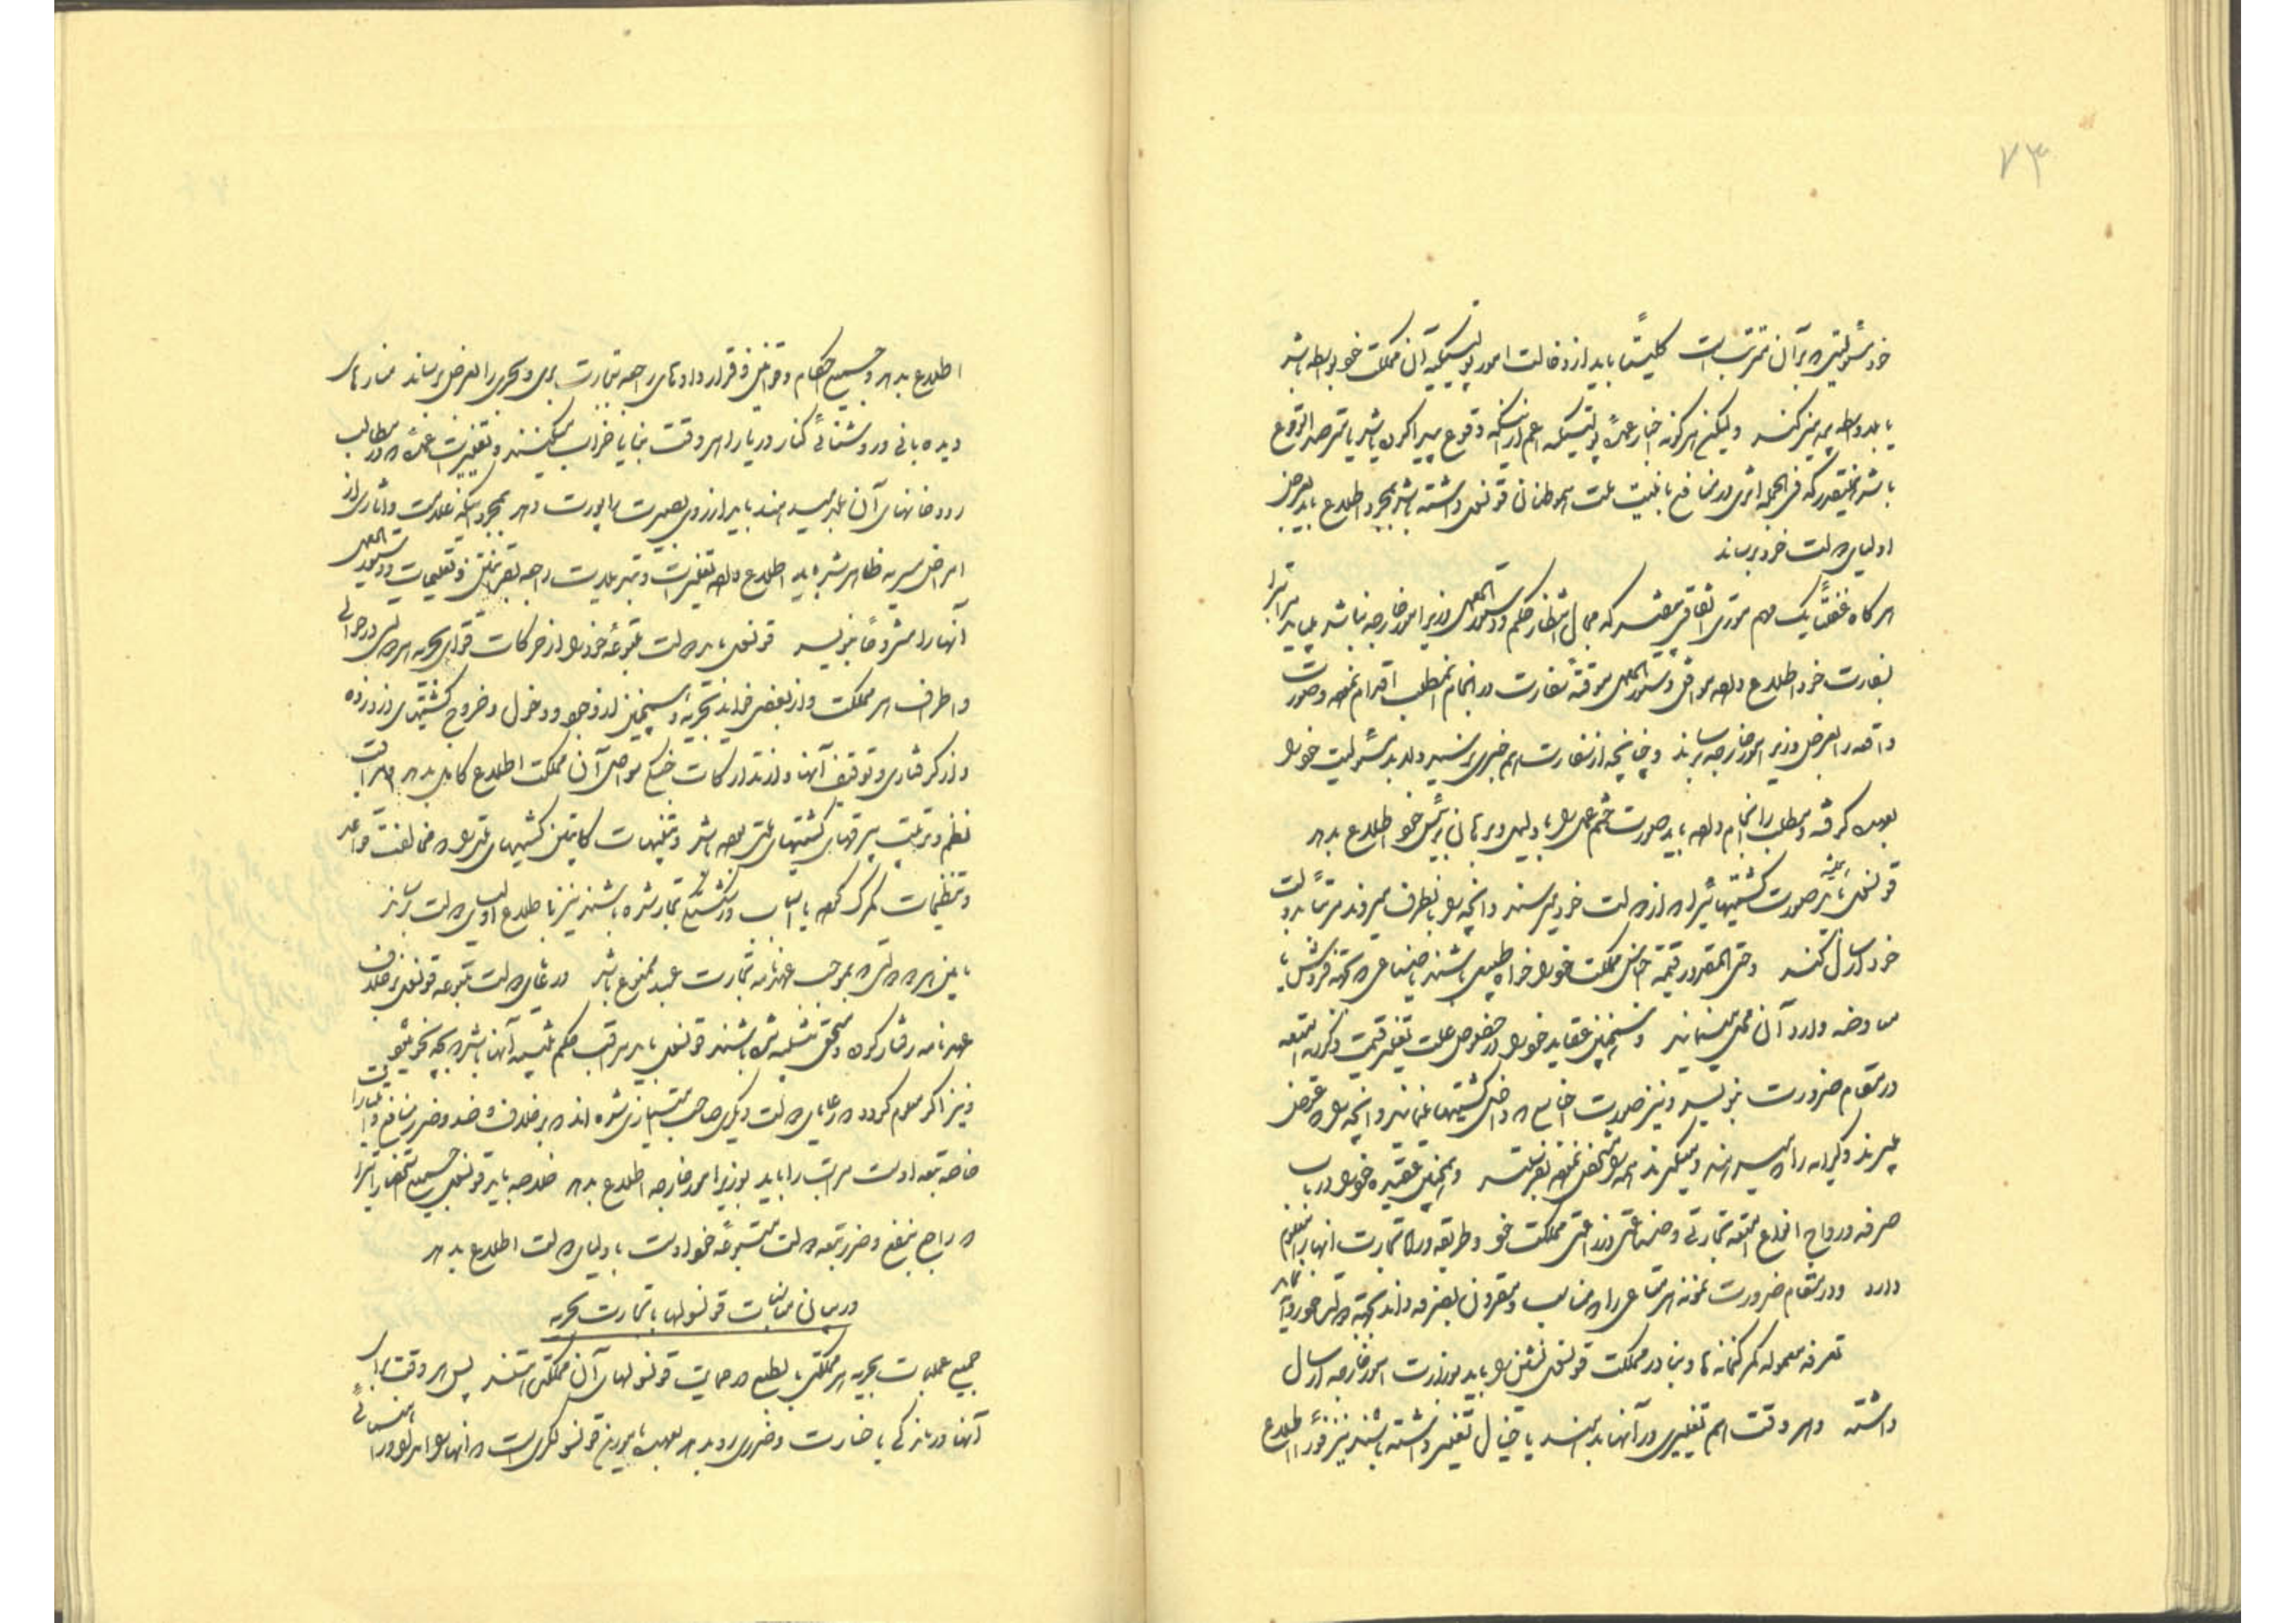 ۷۳
خود مسئولیتی که بر آن مترتب است کلیتاً باید از دخالت امور پولیتیکیه آن مملکت خواه بواسطه باشد
یا بلاواسطه پرهیز کنند ولیکن هر گونه اخبار عمدهٔ پولیتیکیه اعم از اینکه وقوع پیدا کرده باشد یا مترصد الوقوع
باشد همینقدر که فی الجمله اثری در منافع یا امنیت ملت هموطنان قونسول داشته باشد بمجرد اطلاع باید بعرض
اولیای دولت خود برساند
هرگاه غفلتاً یک مهم فوری اتفاق بیفتد که مجال انتظار حکم و دستورالعمل وزیر امور خارجه نباشد باید مراتب را
بسفارت خود اطلاع داده موافق دستورالعمل موقتهٔ سفارت در انجام آنمطلب اقدام نموده و صورت
واقعه را بعرض وزیر امور خارجه برساند و چنانچه از سفارت هم خبری نرسید لابد مسئولیت خود را
بعهده گرفته و مطلب را انجام داده باید صورت ختم عمل را با دلیل و برهان برئیس خود اطلاع بدهد
قونسول باید همیشه صورت کشتیهائی را که از دولت خود میرسند و آنچه را بانطرف میروند مرتباً بدولت
خود ارسال کنند و حتی المقدور قیمت اجناس مملکت خود را خواه طبیعی باشند یا صناعی که بجهة فروش یا
معاوضه وارد آن محل مینمایند و همچنین عقاید خود را در خصوص علت تغییر قیمت و کرایه امتعه
در مقام ضرورت بنویسد و نیز صورت اجناسی که داخل کشتیها مینمایند و آنچه را که عوض
میبرند و کرایه را که میدهند و میگیرند همه را مشخص نموده بفرستند و همچنین عقیده خود را در باب
صرفه و رواج انواع امتعه تجارتی و صناعتی و زراعتی مملکت خود و طریقه و راه تجارت انها را معلوم
دارد و در مقام ضرورت نمونه هر متاعی را که مناسب و مقرون بصرفه داند بجهة دولت خود روانه نماید
تعرفه معموله گمرکخانه‌ها و بنادر مملکت قونسول نشین را باید بوزارت امور خارجه ارسال
داشته و هر وقت هم تغییری در آنها بدهند یا خیال تغییر داشته باشند نیز فوراً اطلاع
اطلاع بدهد و جمیع احکام و قوانین و قراردادهای راجعه بتجارت بری و بحری را بعرض برساند منارهای
دیده بانی و روشنائی کنار دریا را هر وقت بنا یا خراب میکنند و تغییرات عمده که در مطالب
رودخانهای آن بلد میدهند باید از روی بصیرت راپورت دهد بمجرد اینکه علامت و آثاری از
امراض مسریه ظاهر شده باید اطلاع داده تغییرات و تبدیلات راجعه بقرانتین و تعلیمات و دستورالعمل
آنها را مشروحاً بنویسد قونسول باید دولت متبوعهٔ خود را از حرکات قوای بحریه هر دولت در حوالی
و اطراف هر مملکت و از بعضی فواید بحریه و همچنین از وجود و دخول و خروج کشتیهای دزد زده
و از گرفتاری و توقیف آنها و از تدارکات جنگی سواحل آن مملکت اطلاع کامل بدهد و مراقب
نظم و ترتیب بیرقهای کشتیهای ملتی بوده باشد و تنبیهات کاپیتن کشتیهای ملتی را که مخالفت قواعد
و تنظیمات گمرک کرده یا اسباب وزشکستگی تجار شده باشند نیز باطلاع اولیای دولت برسانند
مابین هر دو دولتی که بموجب عهدنامه تجارت عبید ممنوع باشد و رعایای دولت متبوعه قونسول بر خلاف
عهدنامه رفتار کرده و مستحق تنبیه شده باشند قونسول باید مراقب حکم تنبیه آنها باشد که بچه نحو میشود
و نیز اگر معلوم گردد که رعایای دولت دیگری صاحب امتیازی شده‌اند که بر خلاف و ضد و ضرر منافع و امتیازات
خاصه تبعه اوست مراتب را باید بوزیر امور خارجه اطلاع بدهد خلاصه باید قونسول جمیع استحضاراتی را
که راجع بنفع و ضرر تبعه دولت متبوعهٔ خود اوست باولیای دولت اطلاع بدهد
در بیان مناسبات قونسولها با تجارت بحریه
جمیع عملجات بحریه هر مملکتی بالطبع در حمایت قونسولهای آن مملکتی هستند پس هر وقت برای
آنها درماندگی یا خسارت و ضرری رو بدهد بعهدهٔ مأمورین قونسولگری است که انها را امداد و رأفت